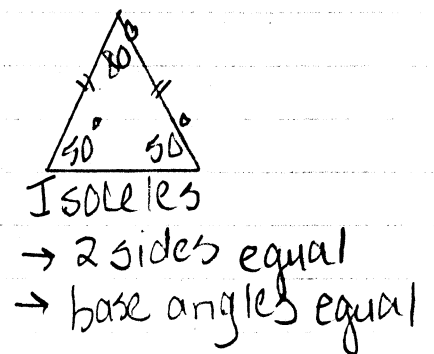 80°
50° 50°
Isoceles
→ 2 sides equal
→ base angles equal